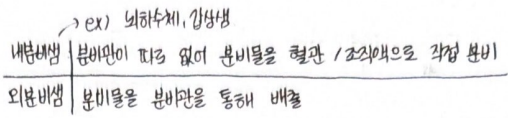 ex) 뇌하수체, 갑상샘
내분비샘 분비관이 따로 없어 분비물을 혈관 / 조직액으로 직접 분비
외분비샘 분비물을 분비관을 통해 배출